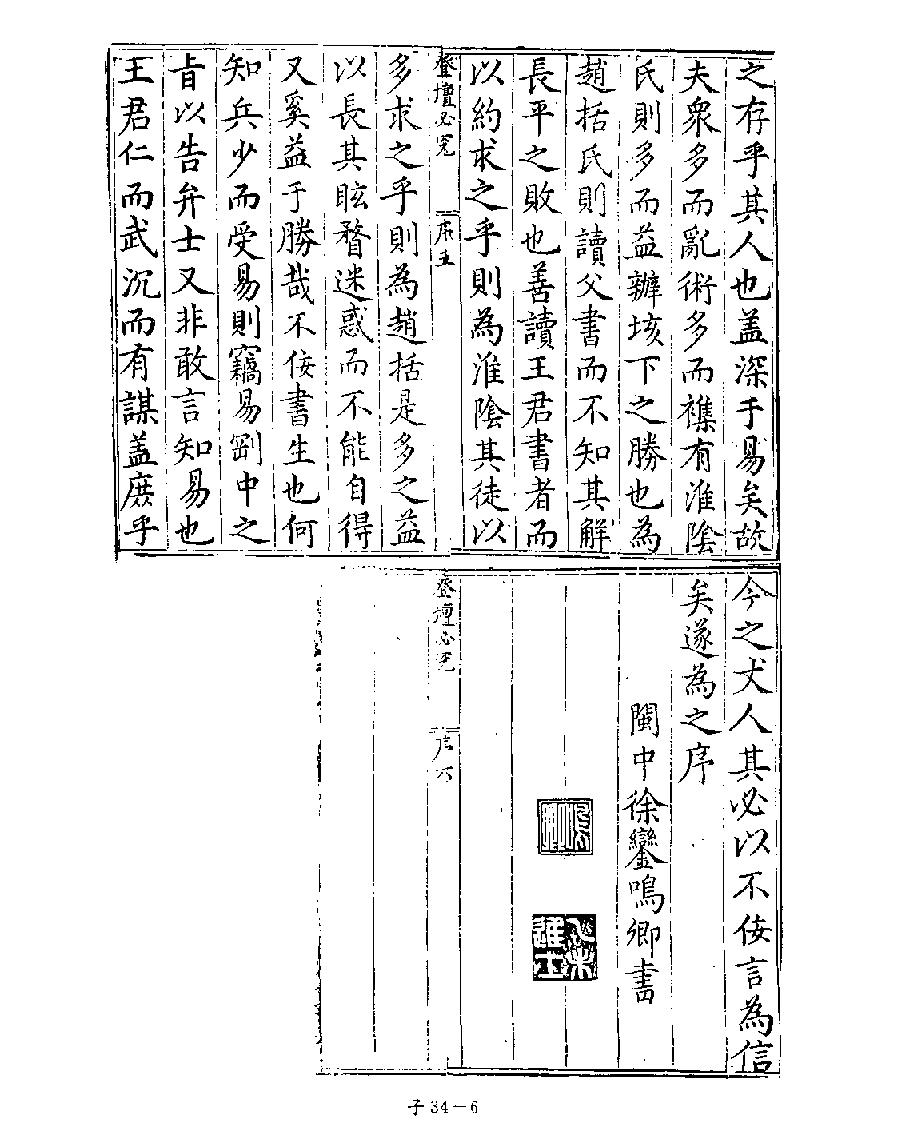 之存乎其人也盖深于易矣故
夫衆多而亂術多而襍有淮陰
氏則多而益辦垓下之勝也為
趙括氏則讀父書而不知其解
長平之敗也善讀王君書者而
以約求之乎則為淮陰其徒以
登壇必究 序五
多求之乎則為趙括是多之益
以長其眩瞀迷惑而不能自得
又奚益于勝哉不佞書生也何
知兵少而受易則竊易劉中之
旨以告弁士又非敢言知易也
王君仁而武沉而有謀盖庶乎
今之丈人其必以不佞言為信
矣遂為之序
閩中徐鑾鳴卿書
登壇必究 序六
子34－6